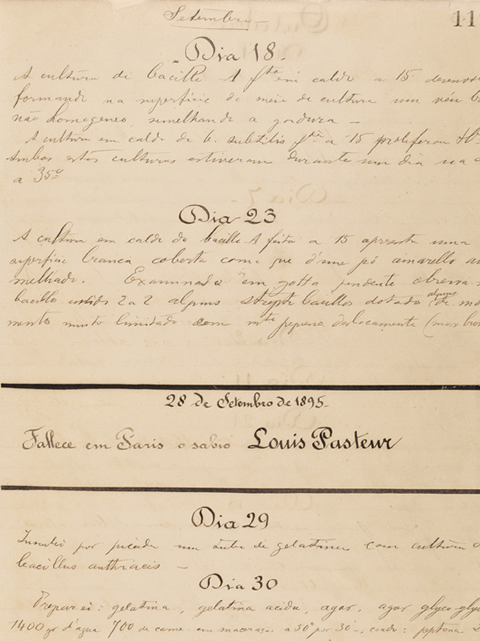 Setembro
11
Dia 18.
A cultura de bacillo A fta em caldo a 15
formando na superficie do meio de cultura um véu
não homogeneo, semelhando a gordura –
A cultura em caldo de b. subtilis fta a 15 proliferou
Ambas estas culturas estiveram durante um dia na
a 35º
Dia 23
A cultura em caldo do bacillo A feita a 15 apresenta uma
superficie branca coberta como que d'um pó amarello
melhado. Examinada em gotta pendente
bacillo unidos 2 a 2 alguns strepto bacillos dotado de
mentos muito limitado com mto pequeno deslocamento
28 de Setembro de 1895.
Fallece em Paris o sabio Louis Pasteur
Dia 29
por picada um tubo de gelatina com cultura
bacillus anthracis –
Dia 30
Preparei: gelatina, gelatina acida, agar, agar
1400 gr d'agua 700 de carne em maceração a 50º por 30',